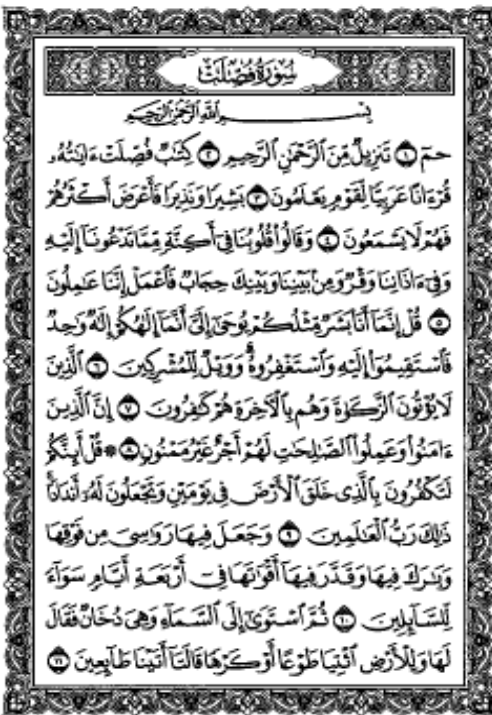 سُورَةُ فُصِّلَتْ
بِسْمِ اللَّهِ الرَّحْمَٰنِ الرَّحِيمِ
حمٓ ١ تَنزِيلٌ مِّنَ ٱلرَّحْمَٰنِ ٱلرَّحِيمِ ٢ كِتَٰبٌ فُصِّلَتْ ءَايَٰتُهُۥ
قُرْءَانًا عَرَبِيًّا لِّقَوْمٍ يَعْلَمُونَ ٣ بَشِيرًا وَنَذِيرًا فَأَعْرَضَ أَكْثَرُهُمْ
فَهُمْ لَا يَسْمَعُونَ ٤ وَقَالُوا۟ قُلُوبُنَا فِىٓ أَكِنَّةٍ مِّمَّا تَدْعُونَآ إِلَيْهِ
وَفِىٓ ءَاذَانِنَا وَقْرٌ وَمِنۢ بَيْنِنَا وَبَيْنِكَ حِجَابٌ فَٱعْمَلْ إِنَّنَا عَٰمِلُونَ
٥ قُلْ إِنَّمَآ أَنَا۠ بَشَرٌ مِّثْلُكُمْ يُوحَىٰٓ إِلَىَّ أَنَّمَآ إِلَٰهُكُمْ إِلَٰهٌ وَٰحِدٌ
فَٱسْتَقِيمُوٓا۟ إِلَيْهِ وَٱسْتَغْفِرُوهُ ۗ وَوَيْلٌ لِّلْمُشْرِكِينَ ٦ ٱلَّذِينَ
لَا يُؤْتُونَ ٱلزَّكَوٰةَ وَهُم بِٱلْءَاخِرَةِ هُمْ كَٰفِرُونَ ٧ إِنَّ ٱلَّذِينَ
ءَامَنُوا۟ وَعَمِلُوا۟ ٱلصَّٰلِحَٰتِ لَهُمْ أَجْرٌ غَيْرُ مَمْنُونٍ ٨ ۞ قُلْ أَئِنَّكُمْ
لَتَكْفُرُونَ بِٱلَّذِى خَلَقَ ٱلْأَرْضَ فِى يَوْمَيْنِ وَتَجْعَلُونَ لَهُۥٓ أَندَادًا ۚ
ذَٰلِكَ رَبُّ ٱلْعَٰلَمِينَ ٩ وَجَعَلَ فِيهَا رَوَٰسِىَ مِن فَوْقِهَا
وَبَٰرَكَ فِيهَا وَقَدَّرَ فِيهَآ أَقْوَٰتَهَا فِىٓ أَرْبَعَةِ أَيَّامٍ سَوَآءً
لِّلسَّآئِلِينَ ١٠ ثُمَّ ٱسْتَوَىٰٓ إِلَى ٱلسَّمَآءِ وَهِىَ دُخَانٌ فَقَالَ
لَهَا وَلِلْأَرْضِ ٱئْتِيَا طَوْعًا أَوْ كَرْهًا قَالَتَآ أَتَيْنَا طَآئِعِينَ ١١